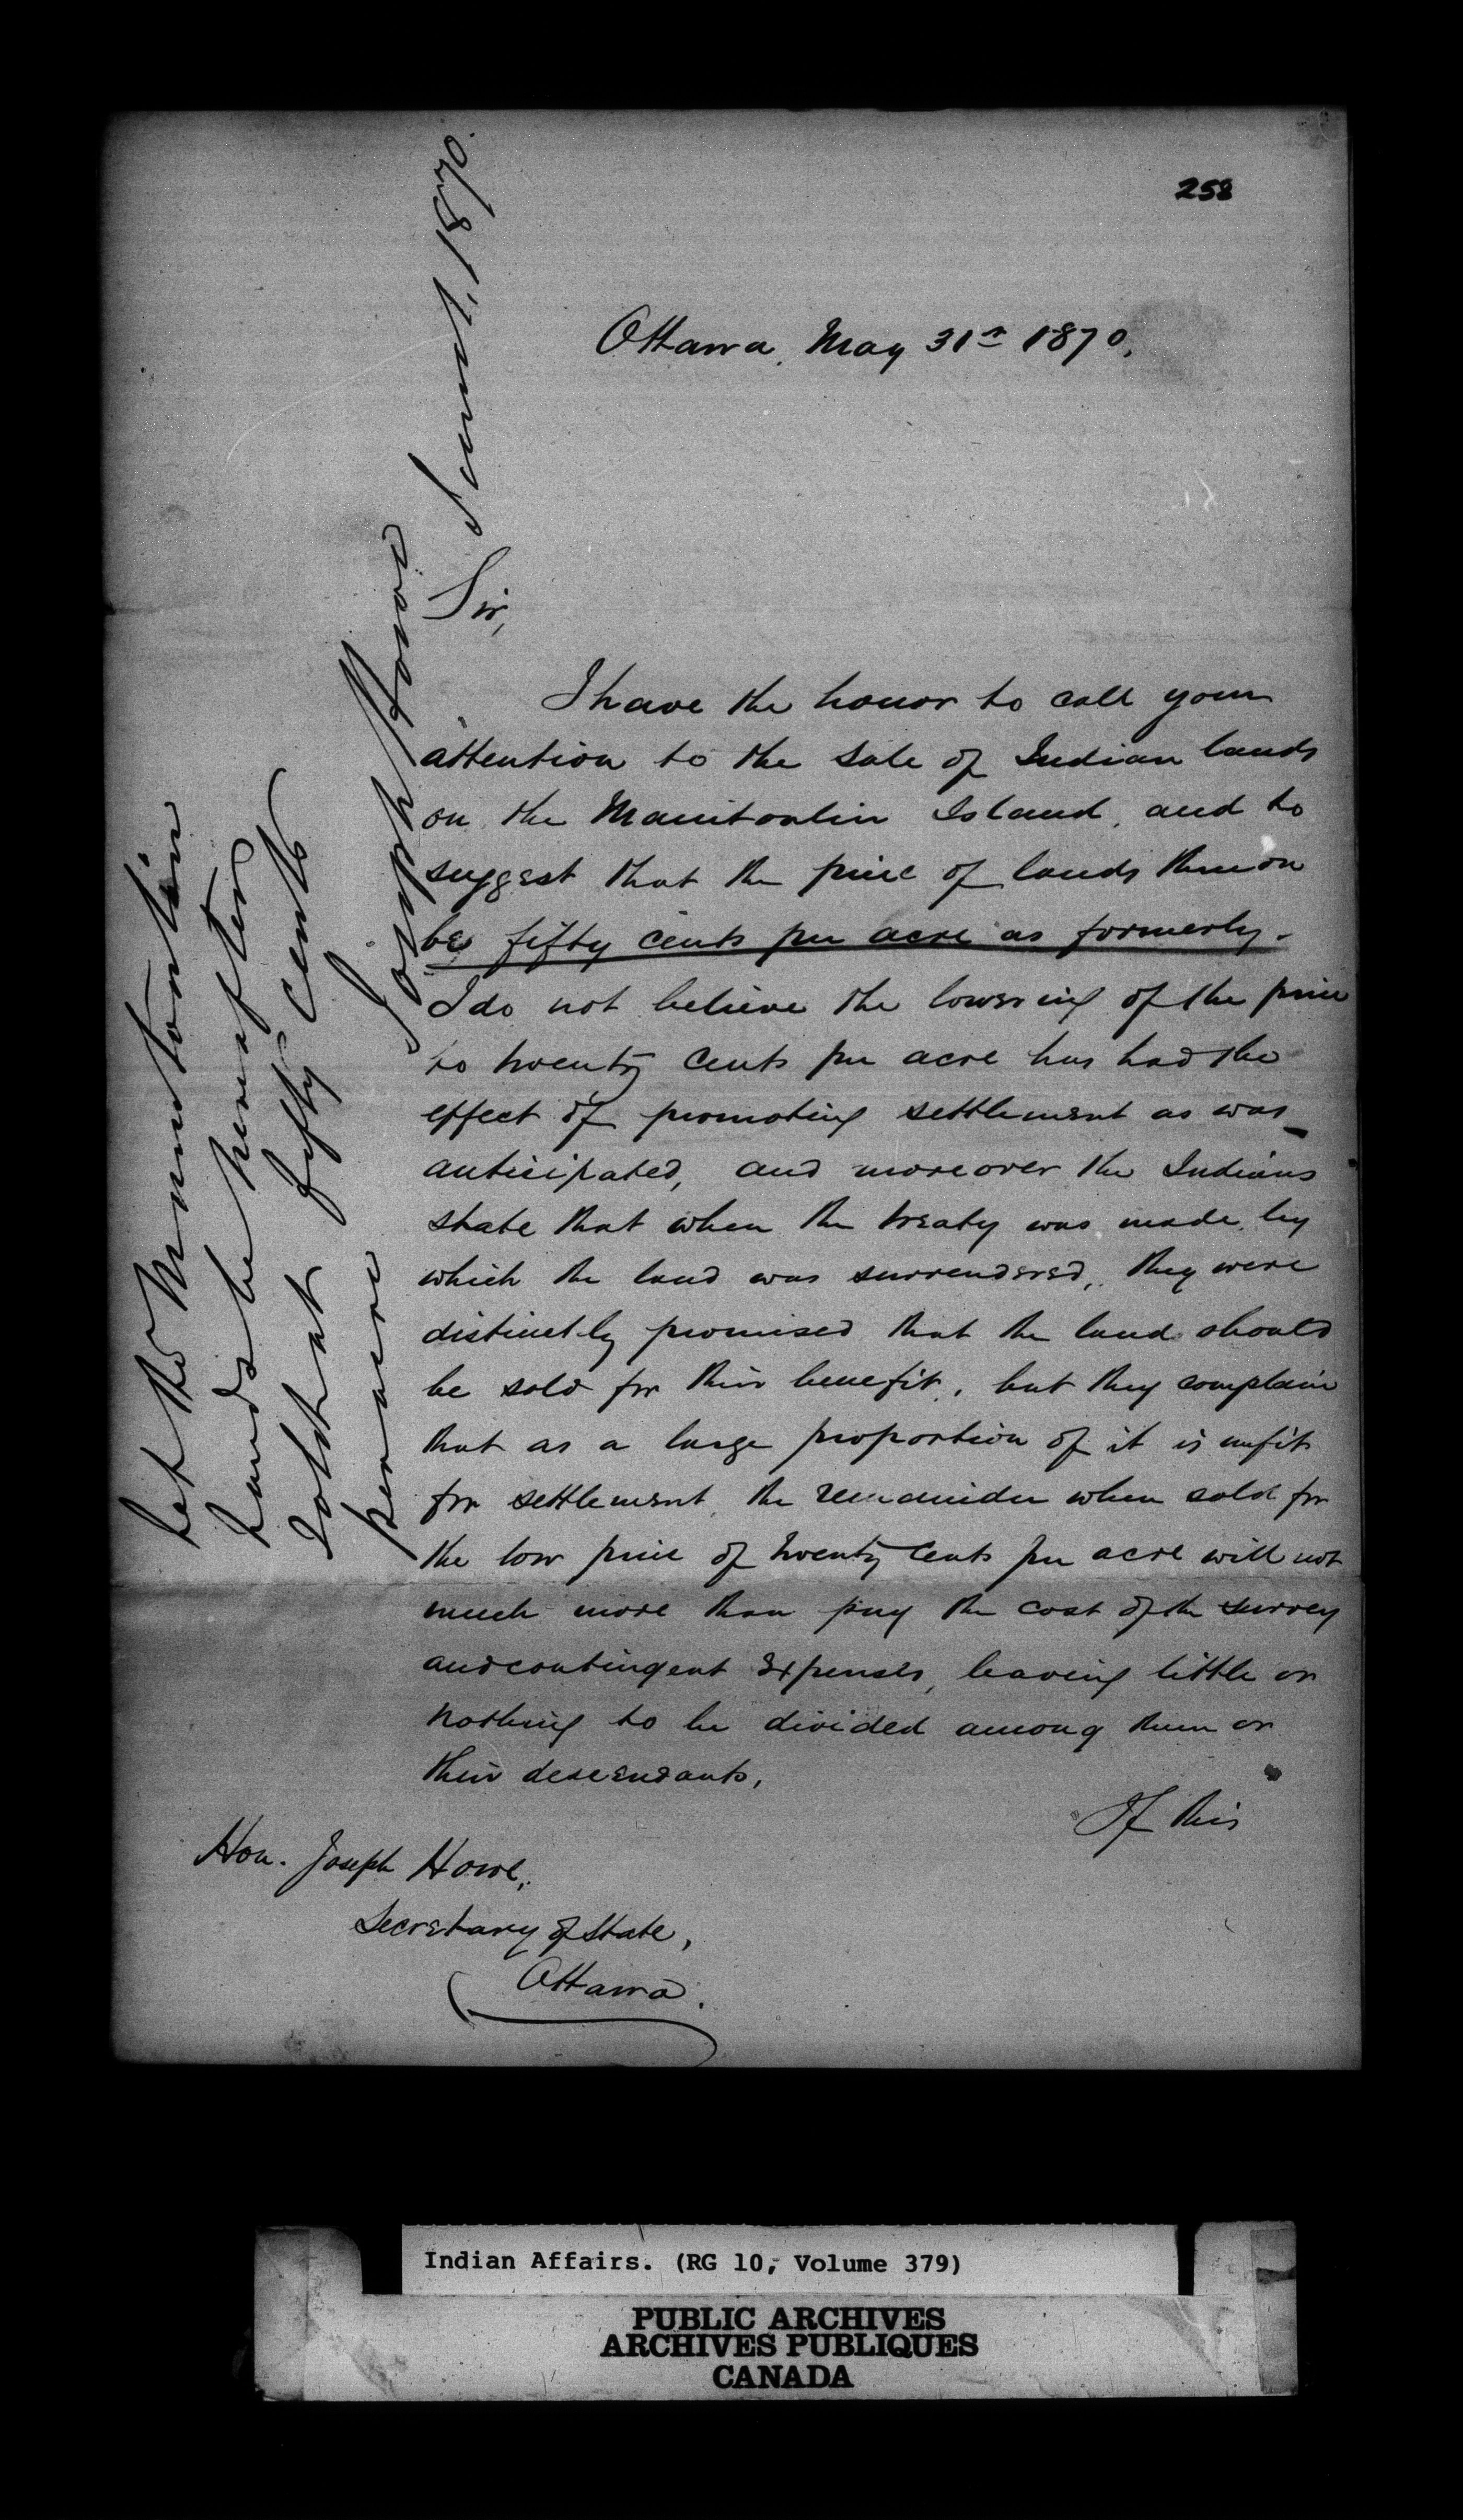 258
Ottawa, May 31st 1870.
Sir,
I have the honor to call your
attention to the sale of Indian lands
on the Manitoulin Island, and to
suggest that the price of lands thereon
be fifty cents per acre as formerly.
I do not believe the lowering of the price
to twenty cents per acre has had the
effect of promoting settlement as was
anticipated, and moreover the Indians
state that when the treaty was made, by
which the land was surrendered, they were
distinctly promised that the land should
be sold for their benefit, but they complain
that as a large proportion of it is unfit
for settlement, the remainder when sold for
the low price of twenty cents per acre will not
much more than pay the cost of the survey
and contingent expenses, leaving little or
nothing to be divided among them or
their descendants.
If this
Hon. Joseph Howe,
Secretary of State,
Ottawa.
Let the Manitoulin
Lands be hereafter
sold at fifty cents
per acre
Joseph Howe
1870.
Indian Affairs. (RG 10, Volume 379)
PUBLIC ARCHIVES
ARCHIVES PUBLIQUES
CANADA